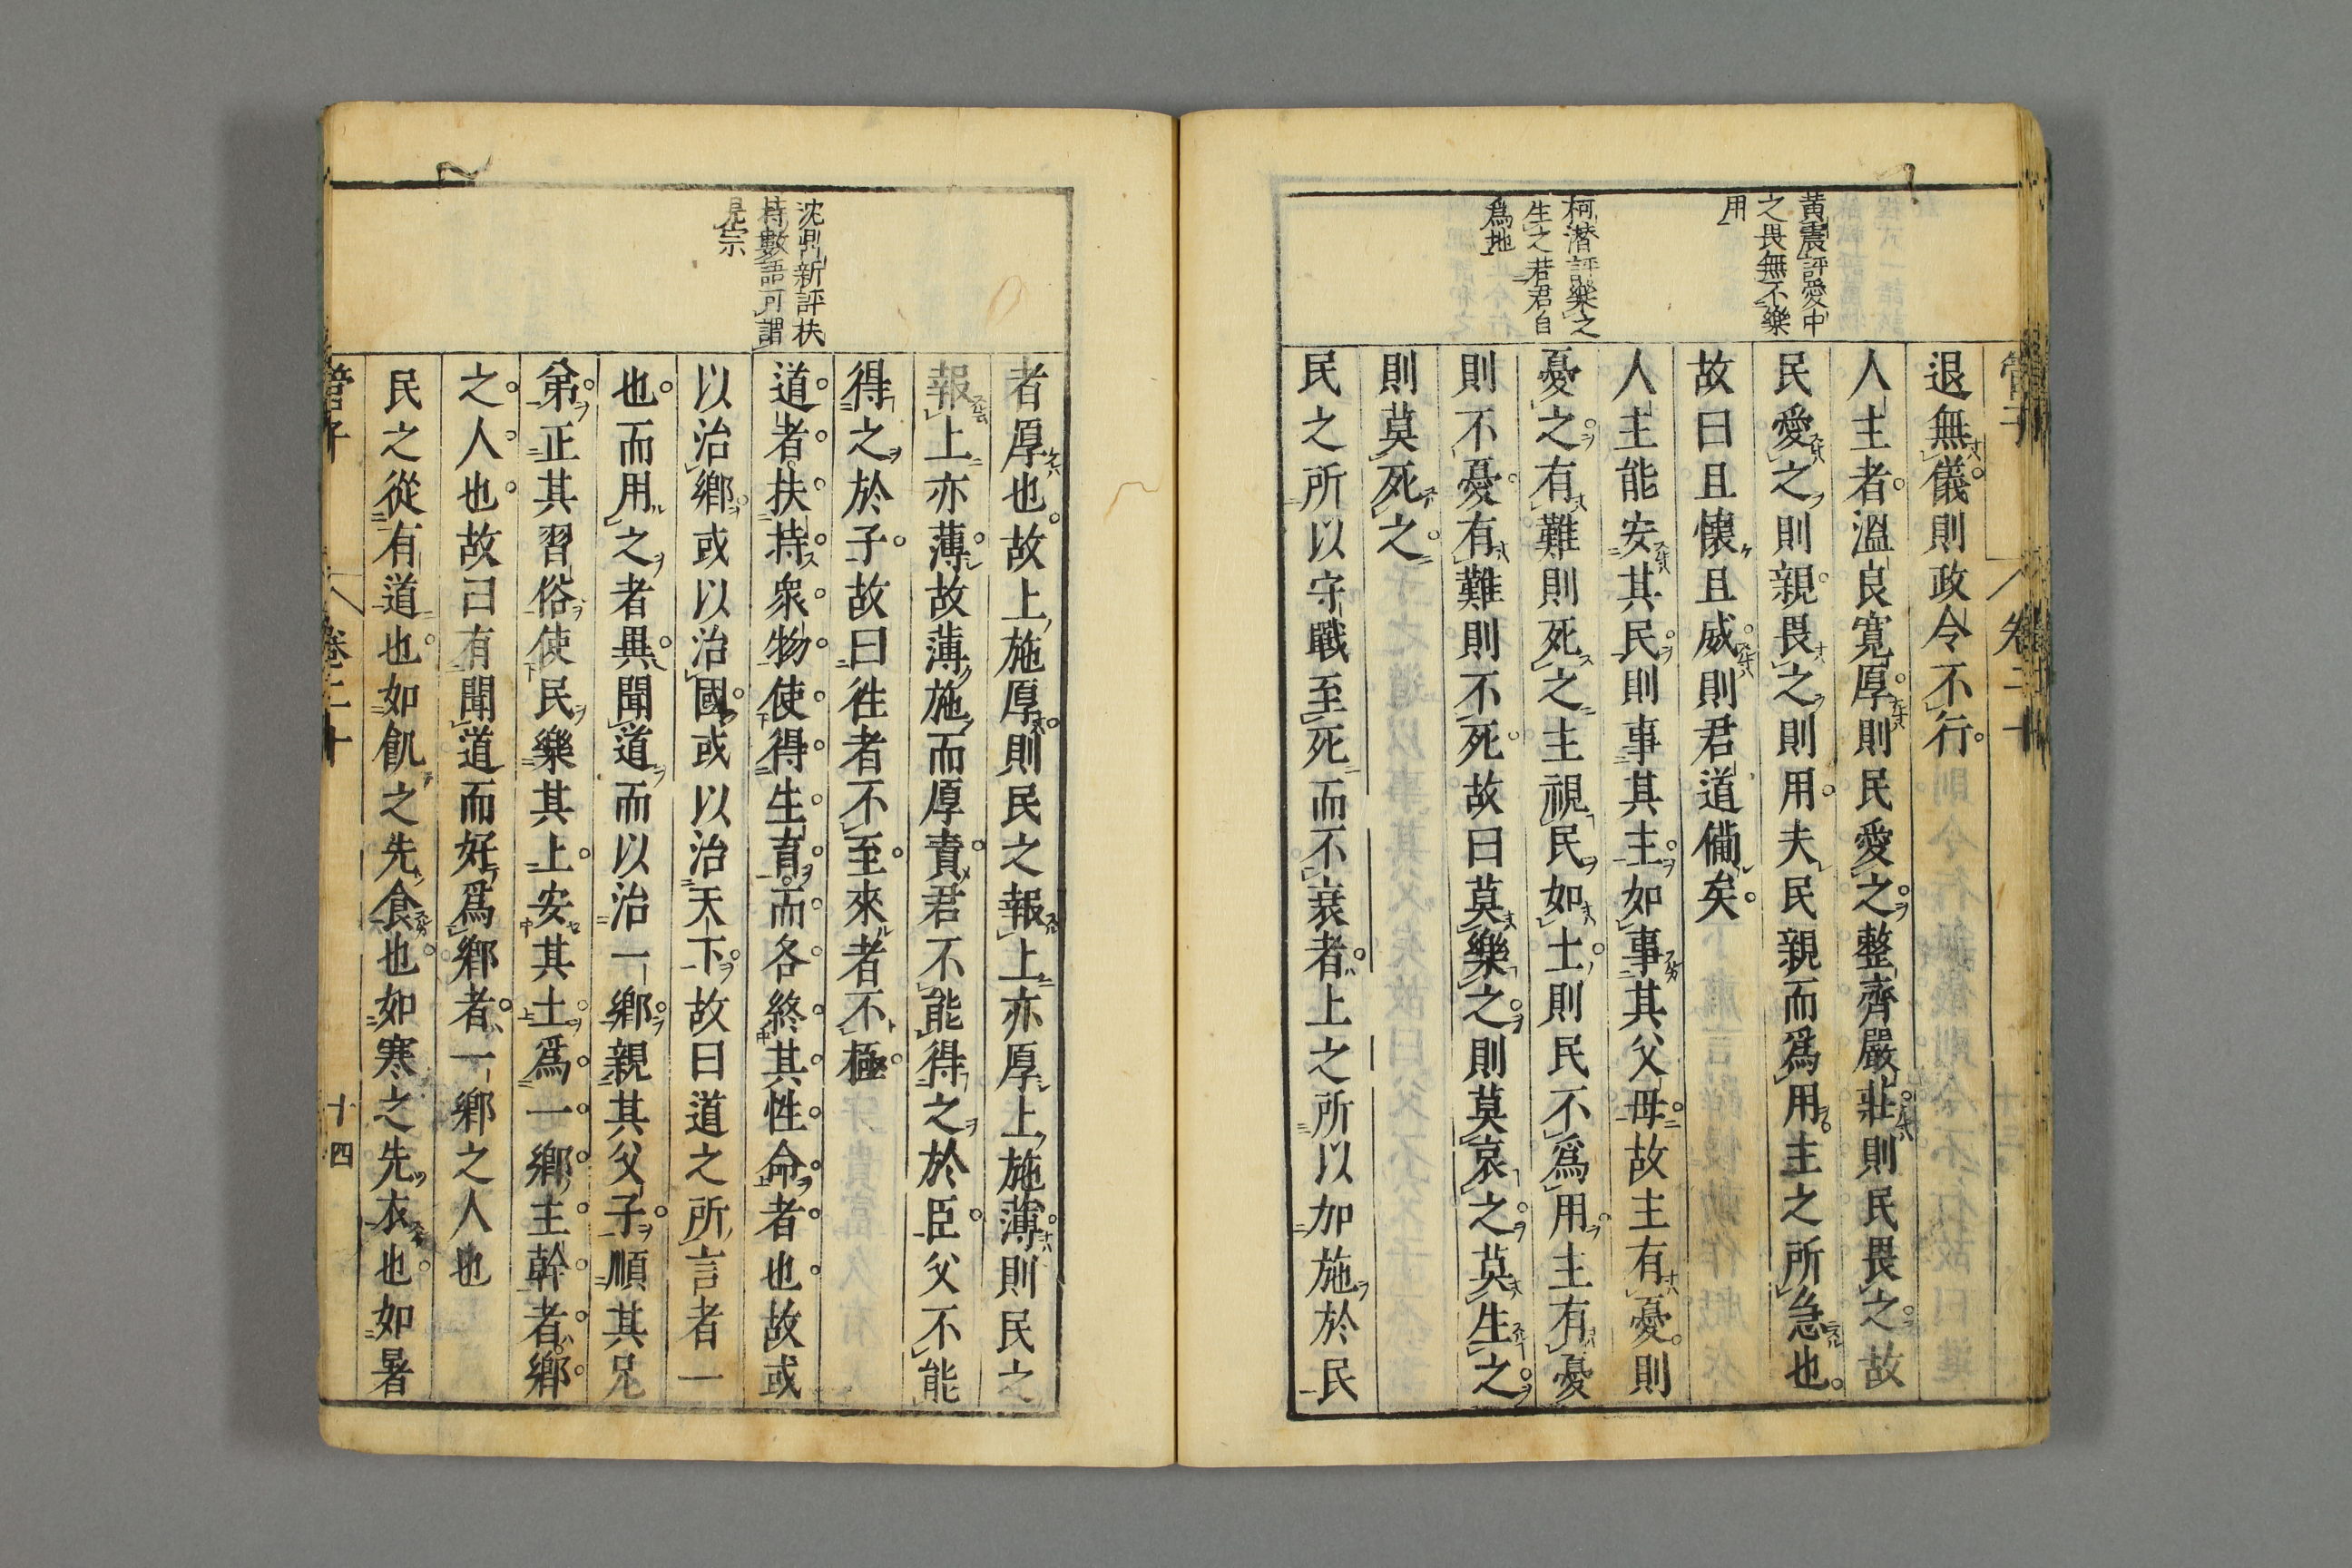 管子
卷二十
黃震評愛中
之畏無不樂
用
柯潛評樂之
生之若君自
爲地
退無儀則政令不行
人主者溫良寬厚則民愛之整齊嚴莊則民畏之故
民愛之則親畏之則用夫民親而爲用主之所急也
故曰且懷且威則君道備矣
人主能安其民則事其主如事其父母故主有憂則
憂之有難則死之主視民如土則民不爲用主有憂
則不憂有難則不死故曰莫樂之則莫哀之莫生之
則莫死之
民之所以守戰至死而不衰者上之所以加施於民
沈鼎新評扶
持數語可謂
見宗
者厚也故上施厚則民之報上亦厚上施薄則民之
報上亦薄故薄施而厚責君不能得之於臣父不能
得之於子故曰徃者不至來者不極
道者扶持衆物使得生育而各終其性命者也故或
以治鄉或以治國或以治天下故曰道之所言者一
也而用之者異聞道而以治一鄉親其父子順其兄
弟正其習俗使民樂其上安其土爲一鄉主幹者鄉
之人也故曰有聞道而好爲鄉者一鄉之人也
民之從有道也如飢之先食也如寒之先衣也如暑
管子
卷二十
十四